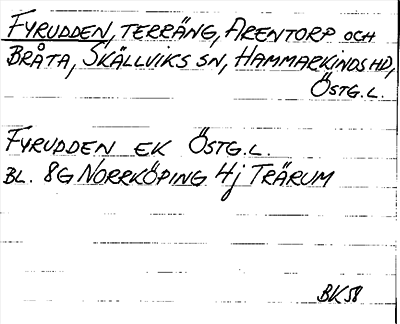 FYRUDDEN, TERRÄNG, ARENTORP OCH
BRÅTA, SKÄLLVIKS SN, HAMMARKINDS HD,
ÖSTG.L.
FYRUDDEN EK ÖSTG.L.
BL. 8G NORRKÖPING 4j TRÄRUM
BK58